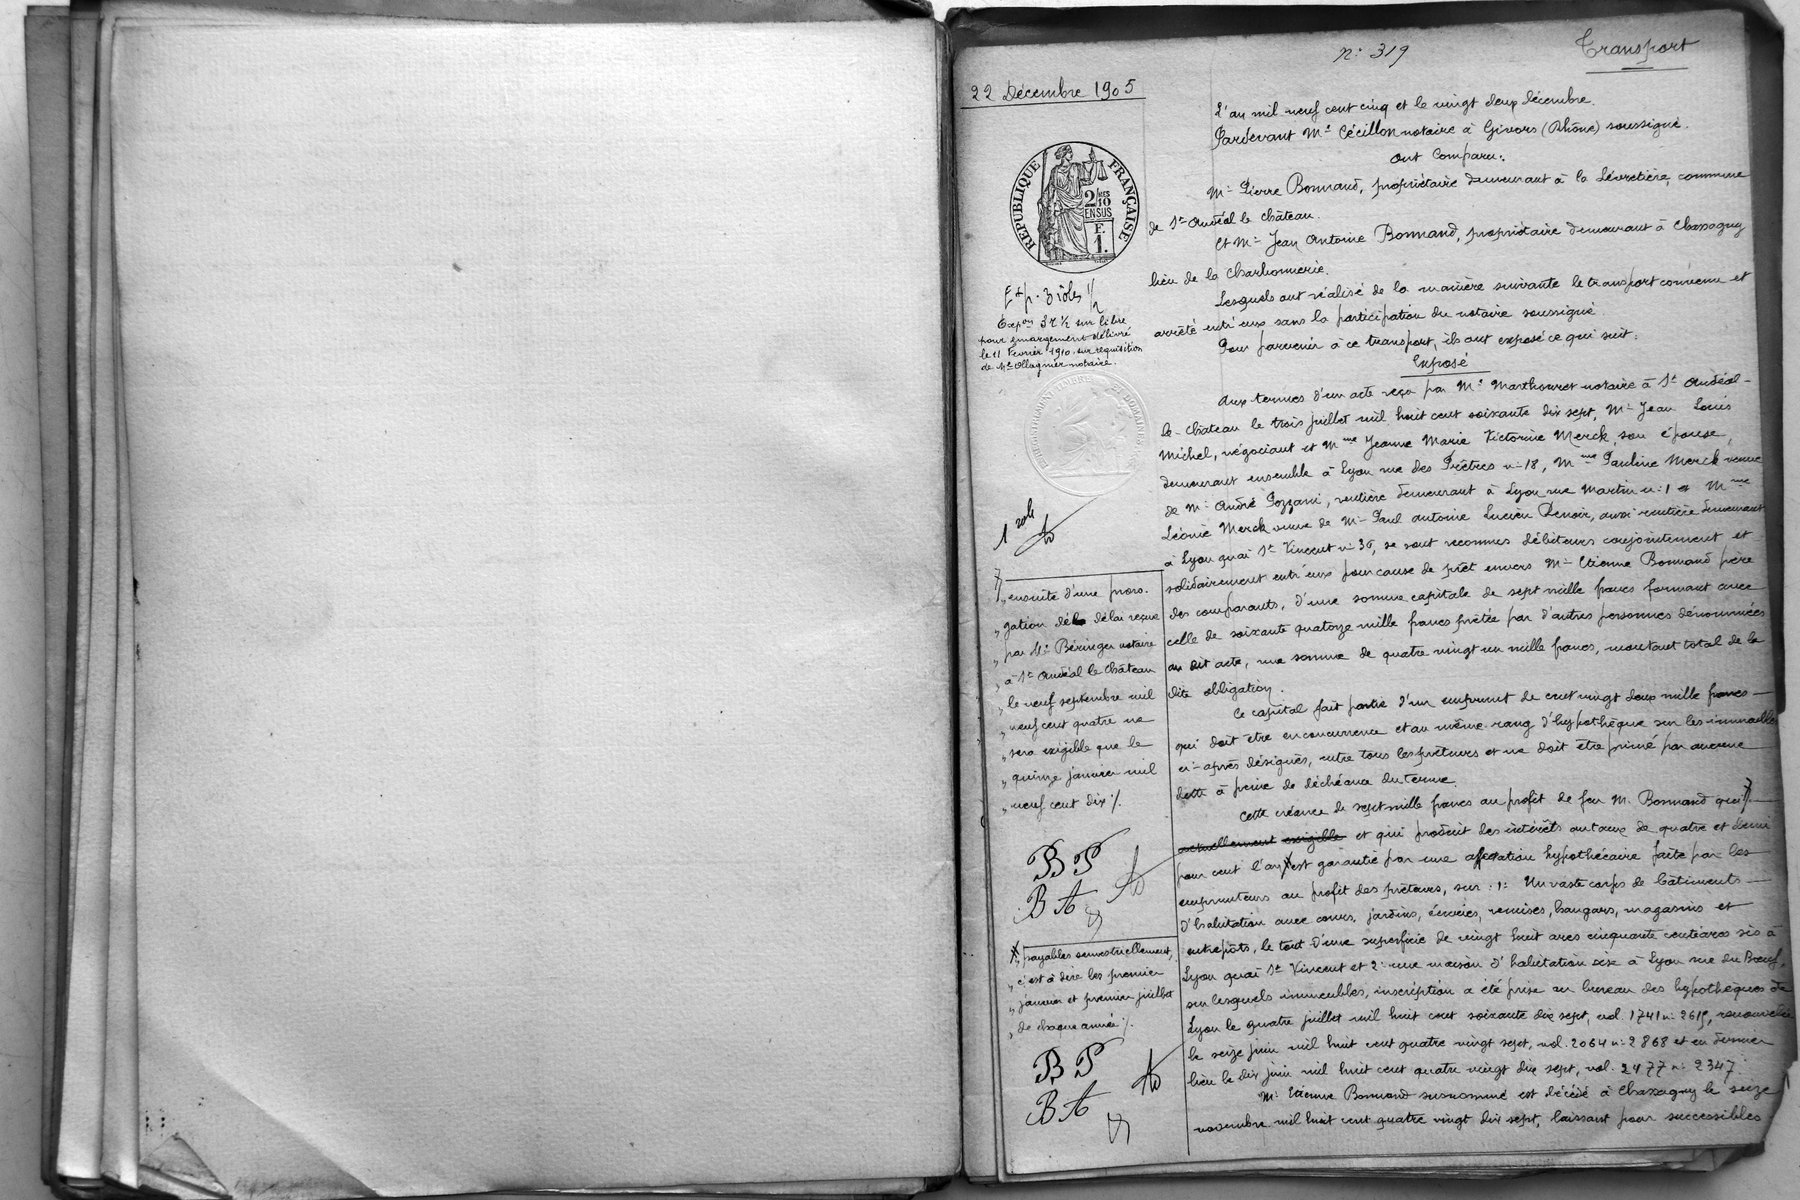 n: 319
Transport
22 Décembre 1905
RÉPUBLIQUE FRANÇAISE
2/10
EN SUS
E.
1.
Exp. 3 rôles 1/2
Expon 3 r 1/2 sur libre
pour émargement délivré
le 11 Février 1910 sur réquisition
de Me Ollagnier notaire.
1 role
L'an mil neuf cent cinq et le vingt deux décembre.
Pardevant Me Cécillon notaire à Givors (Rhône) soussigné.
Ont Comparu:
Mr Pierre Bonnand, propriétaire demeurant à la Lévretière, commune
de St Andéol le Château.
Et Mr Jean Antoine Bonnand, propriétaire demeurant à Chassagny
lieu de la Charbonnerie.
Lesquels ont réalisé de la manière suivante le transport convenu et
arrêté entr'eux sans la participation du notaire soussigné.
Pour parvenir à ce transport, ils ont exposé ce qui suit:
Exposé
Aux termes d'un acte reçu par Me Marthouret notaire à St Andéol-
le-Château le trois juillet mil huit cent soixante dix sept, Mr Jean Louis
Michel, négociant et Mme Jeanne Marie Victorine Merck, son épouse,
demeurant ensemble à Lyon rue des Prêtres n: 18, Mme Pauline Merck veuve
de Mr André Pozzani, rentière demeurant à Lyon rue Martin n: 1 et Mme
Léonie Merck veuve de Mr Paul Antoine Lucien Renoir, aussi rentière demeurant
à Lyon quai St Vincent n: 36, se sont reconnus débiteurs conjointement et
solidairement entr'eux pour cause de prêt envers Mr Etienne Bonnand père
des comparants, d'une somme capitale de sept mille francs formant avec
celle de soixante quatorze mille francs prêtée par d'autres personnes dénommées
au dit acte, une somme de quatre vingt un mille francs, montant total de la
dite obligation.
Ce capital fait partie d'un emprunt de cent vingt deux mille francs —
qui doit être en concurrence et au même rang d'hypothèque sur les immeubles
ci-après désignés, entre tous les prêteurs et ne doit être primé par aucune
dette à peine de déchéance du terme.
Cette créance de sept mille francs au profit de feu M. Bonnand qui
actuellement exigible et qui produit des intérêts au taux de quatre et demi
pour cent l'an est garantie par une affectation hypothécaire faite par les
emprunteurs au profit des prêteurs, sur: 1: Un vaste corps de bâtiments —
d'habitation avec cours, jardins, écuries, remises, hangars, magasins et
entrepôts, le tout d'une superficie de vingt huit ares cinquante centiares sis à
Lyon quai St Vincent et 2: une maison d'habitation sise à Lyon rue du Bœuf,
sur lesquels immeubles, inscription a été prise au bureau des hypothèques de
Lyon le quatre juillet mil huit cent soixante dix sept, vol. 1741 n: 2619, renouvelée
le seize juin mil huit cent quatre vingt sept, vol. 2064 n: 2868 et en dernier
lieu le dix juin mil huit cent quatre vingt dix sept, vol. 2477 n: 2347.
Mr Etienne Bonnand susnommé est décédé à Chassagny le seize
novembre mil huit cent quatre vingt dix sept, laissant pour successibles
" ensuite d'une proro-
" gation de délai reçue
" par Me Béringer notaire
" à St Andéol le Château
" le neuf septembre mil
" neuf cent quatre ne
" sera exigible que le
" quinze janvier mil
" neuf cent dix ./.
BP
BA
" payables semestriellement,
" c'est à dire les premier
" janvier et premier juillet
" de chaque année ./.
BP
BA